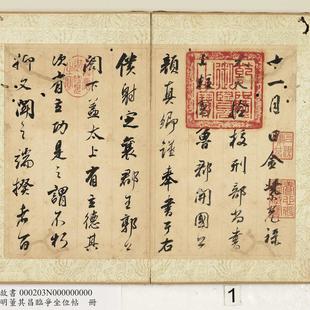 十一月日金紫光祿
大夫檢校刑部尚書
上柱國魯郡開國公
顏真卿謹奉書于右
僕射定襄郡王郭公
閣下蓋太上有立德其
次有立功是之謂不朽
抑又聞之端揆者百
1
故書 000203N000000000
明董其昌臨爭坐位帖 冊